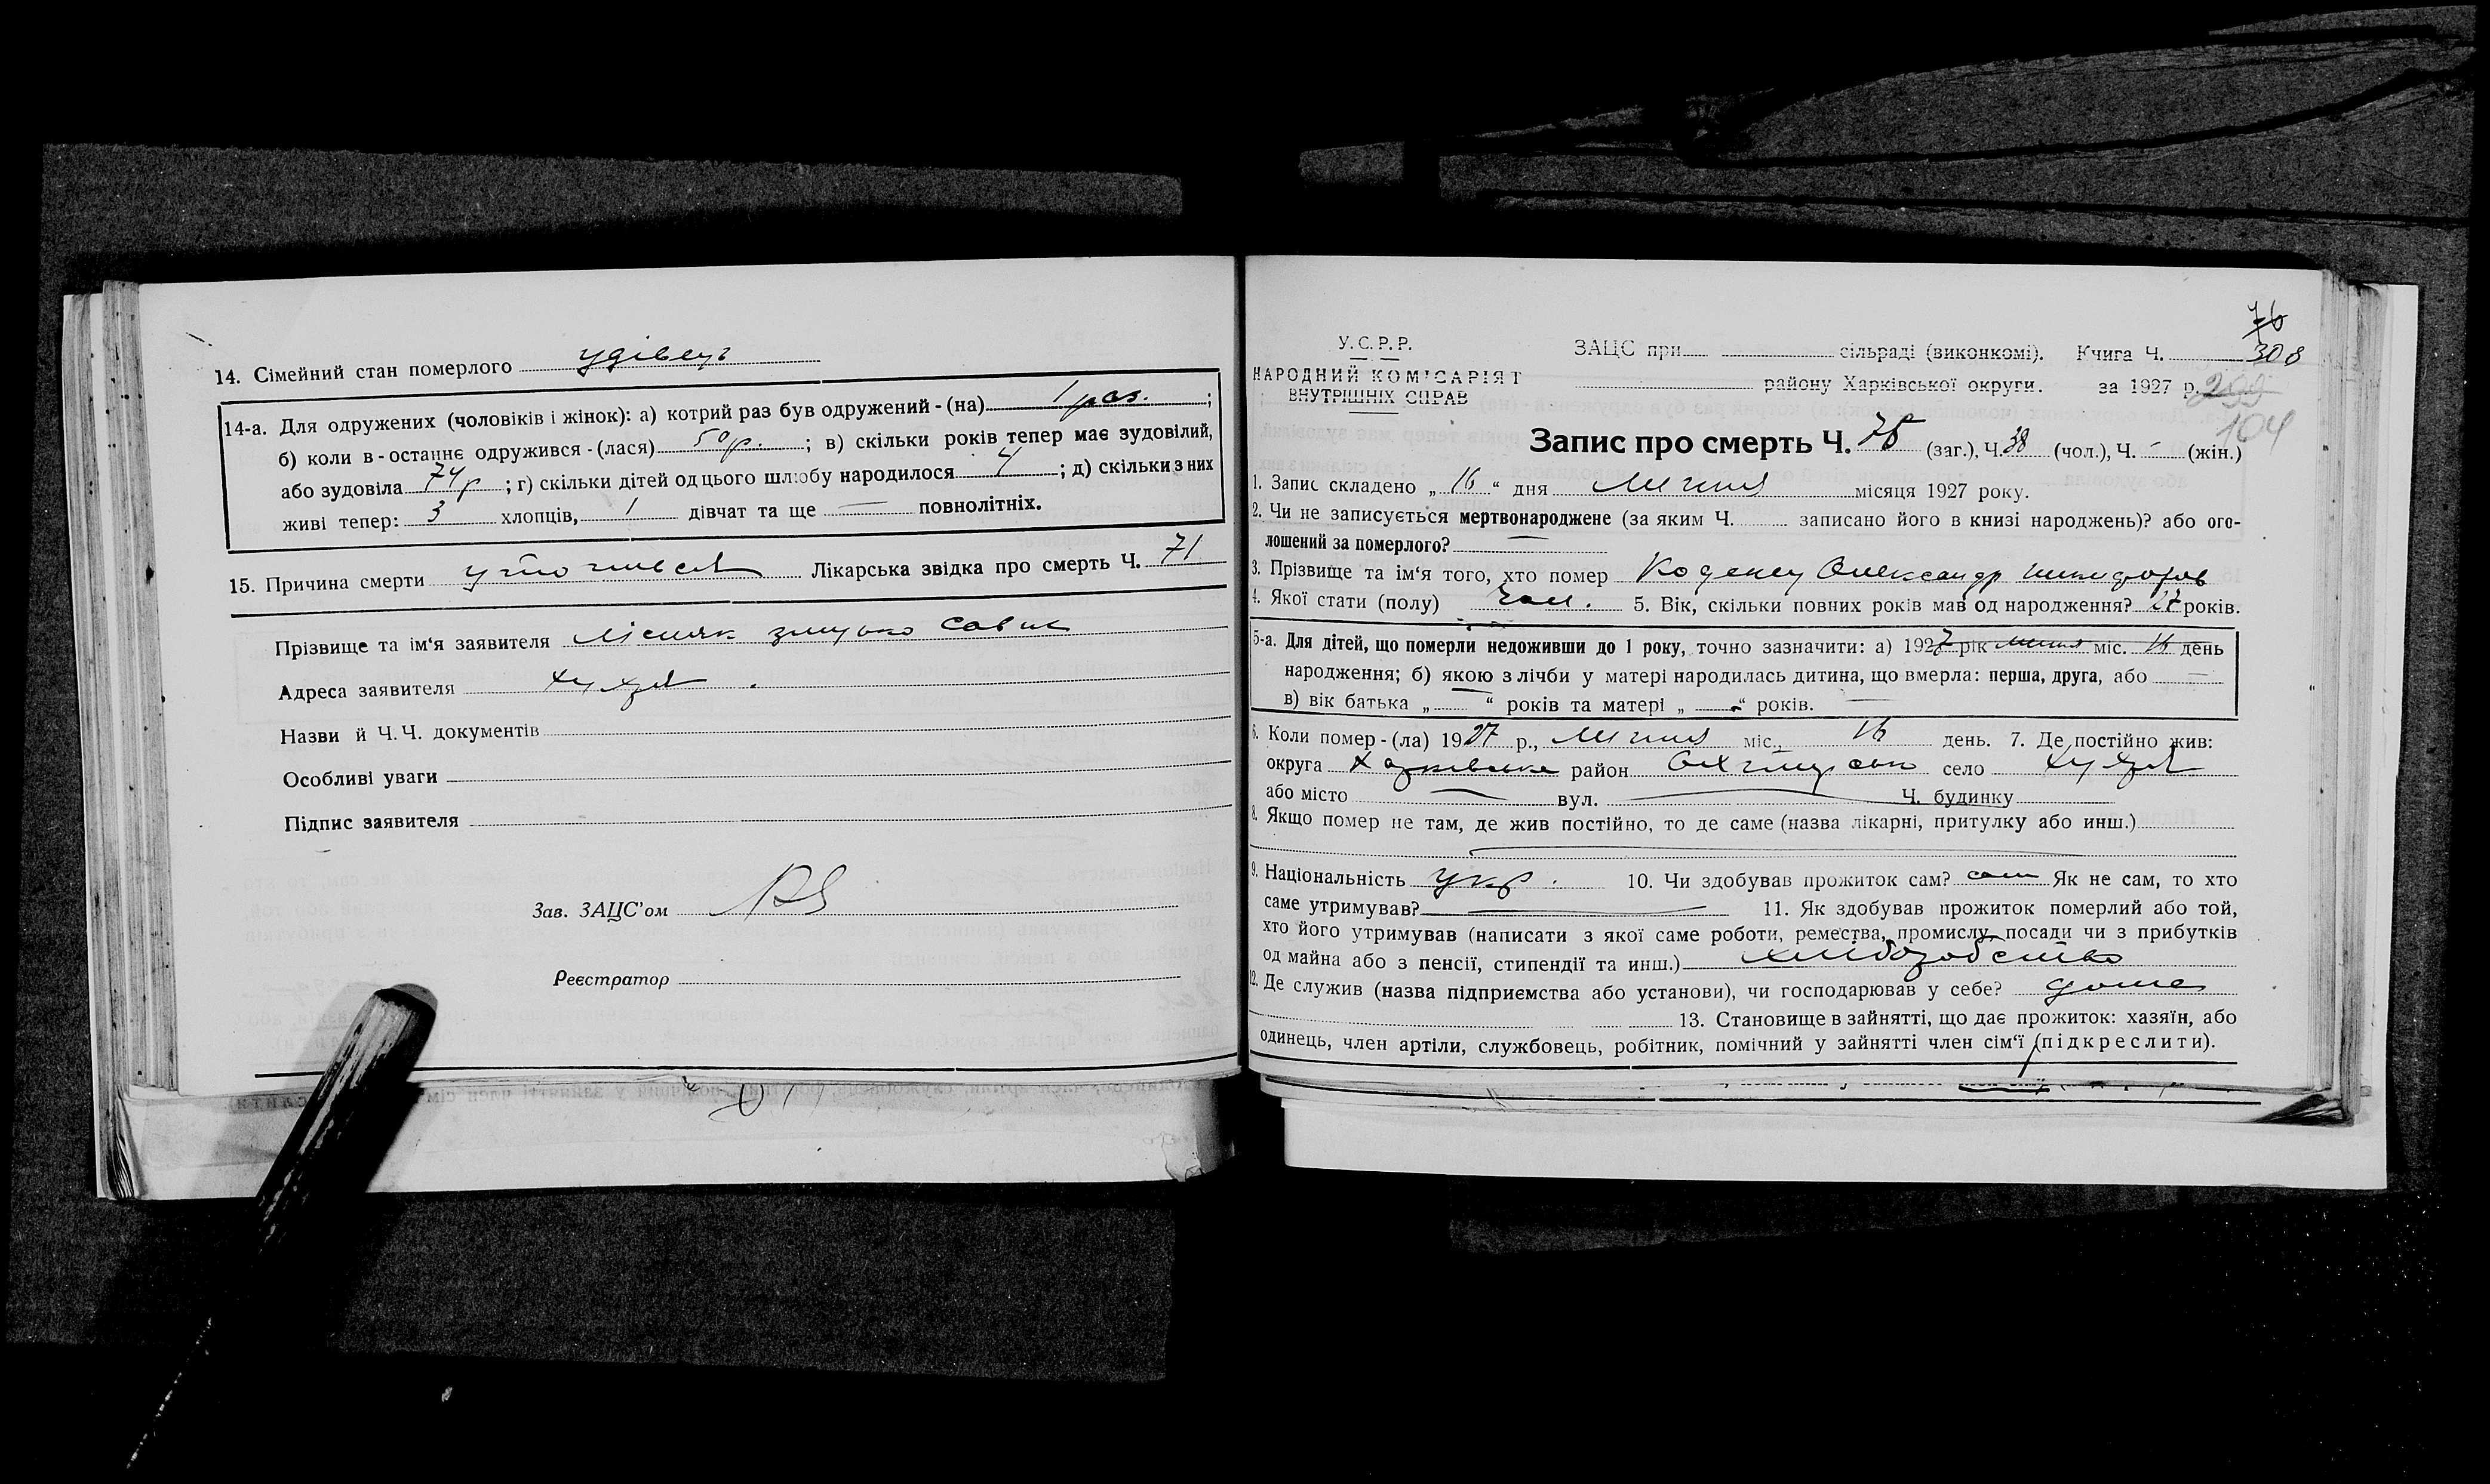 14. Сімейний стан померлого удівец
14-а. Для одружених (чоловіків і жінок): а) котрий раз був одружений - (на) 1 раз. ;
б) коли в-останнє одружився - (лася) 50 р. ; в) скільки років тепер має зудовілий,
або зудовіла 74 р ; г) скільки дітей од цього шлюбу народилося 4 ; д) скільки з них
живі тепер: 3 хлопців, 1 дівчат та ще — повнолітніх.
15. Причина смерти Лікарська звідка про смерть Ч. 71
Прізвище та ім'я заявителя
Адреса заявителя
Назви й Ч. Ч. документів
Особливі уваги
Підпис заявителя
Зав. ЗАЦС'ом
Реєстратор
76
У. С. Р. Р.
ЗАЦС при сільраді (виконкомі). Книга Ч. 308
НАРОДНИЙ КОМІСАРІЯТ
ВНУТРІШНІХ СПРАВ
району Харківської округи. за 1927 р.
104
Запис про смерть Ч. 76 (заг.), Ч. 38 (чол.), Ч. - (жін.)
1. Запис складено „ 16 “ дня липня місяця 1927 року.
2. Чи не записується мертвонароджене (за яким Ч. записано його в книзі народжень)? або ого-
лошений за померлого? —
3. Прізвище та ім'я того, хто помер Коденец Олександр Никифоров
4. Якої стати (полу) чол. 5. Вік, скільки повних років мав од народження? 27 років.
5-а. Для дітей, що померли недоживши до 1 року, точно зазначити: а) 1927 рік липня міс. 16 день
народження; б) якою з лічби у матері народилась дитина, що вмерла: перша, друга, або —
в) вік батька „ “ років та матері „ “ років.
6. Коли помер - (ла) 1927 р., липня міс. 16 день. 7. Де постійно жив:
округа Харківська район село
або місто — вул. — Ч. будинку
8. Якщо помер не там, де жив постійно, то де саме (назва лікарні, притулку або инш.)
9. Національність укр. 10. Чи здобував прожиток сам? сам Як не сам, то хто
саме утримував? — 11. Як здобував прожиток померлий або той,
хто його утримував (написати з якої саме роботи, ремества, промислу, посади чи з прибутків
од майна або з пенсії, стипендії та инш.) хліборобство
12. Де служив (назва підприємства або установи), чи господарював у себе? дома
13. Становище в зайнятті, що дає прожиток: хазяїн, або
одинець, член артіли, службовець, робітник, помічний у зайнятті член сім'ї (підкреслити).